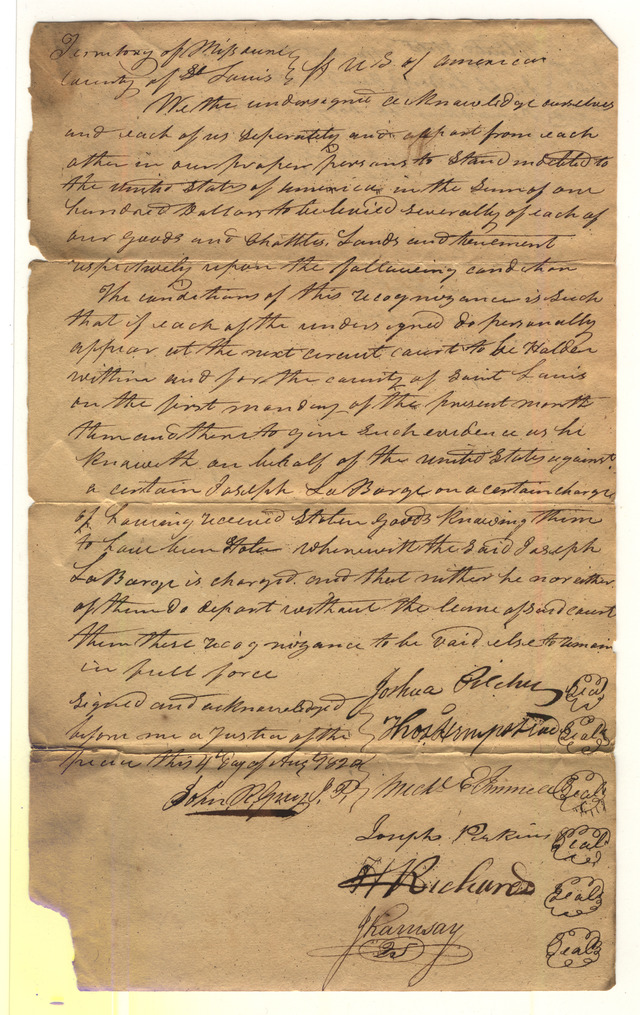 Territory of Missouri
County of St Louis } U S of america
We the undersigned acknowledge ourselves
and each of us seperately and appart from each
other in our proper persons to stand indebted to
the united States of america in the sum of one
hundred Dollars to be levied severally of each of
our goods and Chattles, Lands and tenement
respectively upon the following condition
The conditions of this recognizance is such
that if each of the undersigned do personally
appear at the next circuit court to be Holden
within and for the county of Saint Louis
on the first monday of the present month
then and there to give such evidence as he
knoweth on behalf of the united States against
a certain Joseph LaBarge on a certain charge
of having received stolen goods knowing them
to have been stolen wherewith the said Joseph
LaBarge is charged. and that neither he nor either
of them do depart without the leave of said court
then these recognizance to be void else to remain
in full force
Signed and acknowledged } Joshua Pilcher Seal
before me a Justice of the } Thos Hempstead Seal
peace this 4th Day of Aug 1820
John R Guy J. P. } Mich E Immell Seal
Joseph Perkins Seal
H Richards Seal
J Ramsay Jr Seal